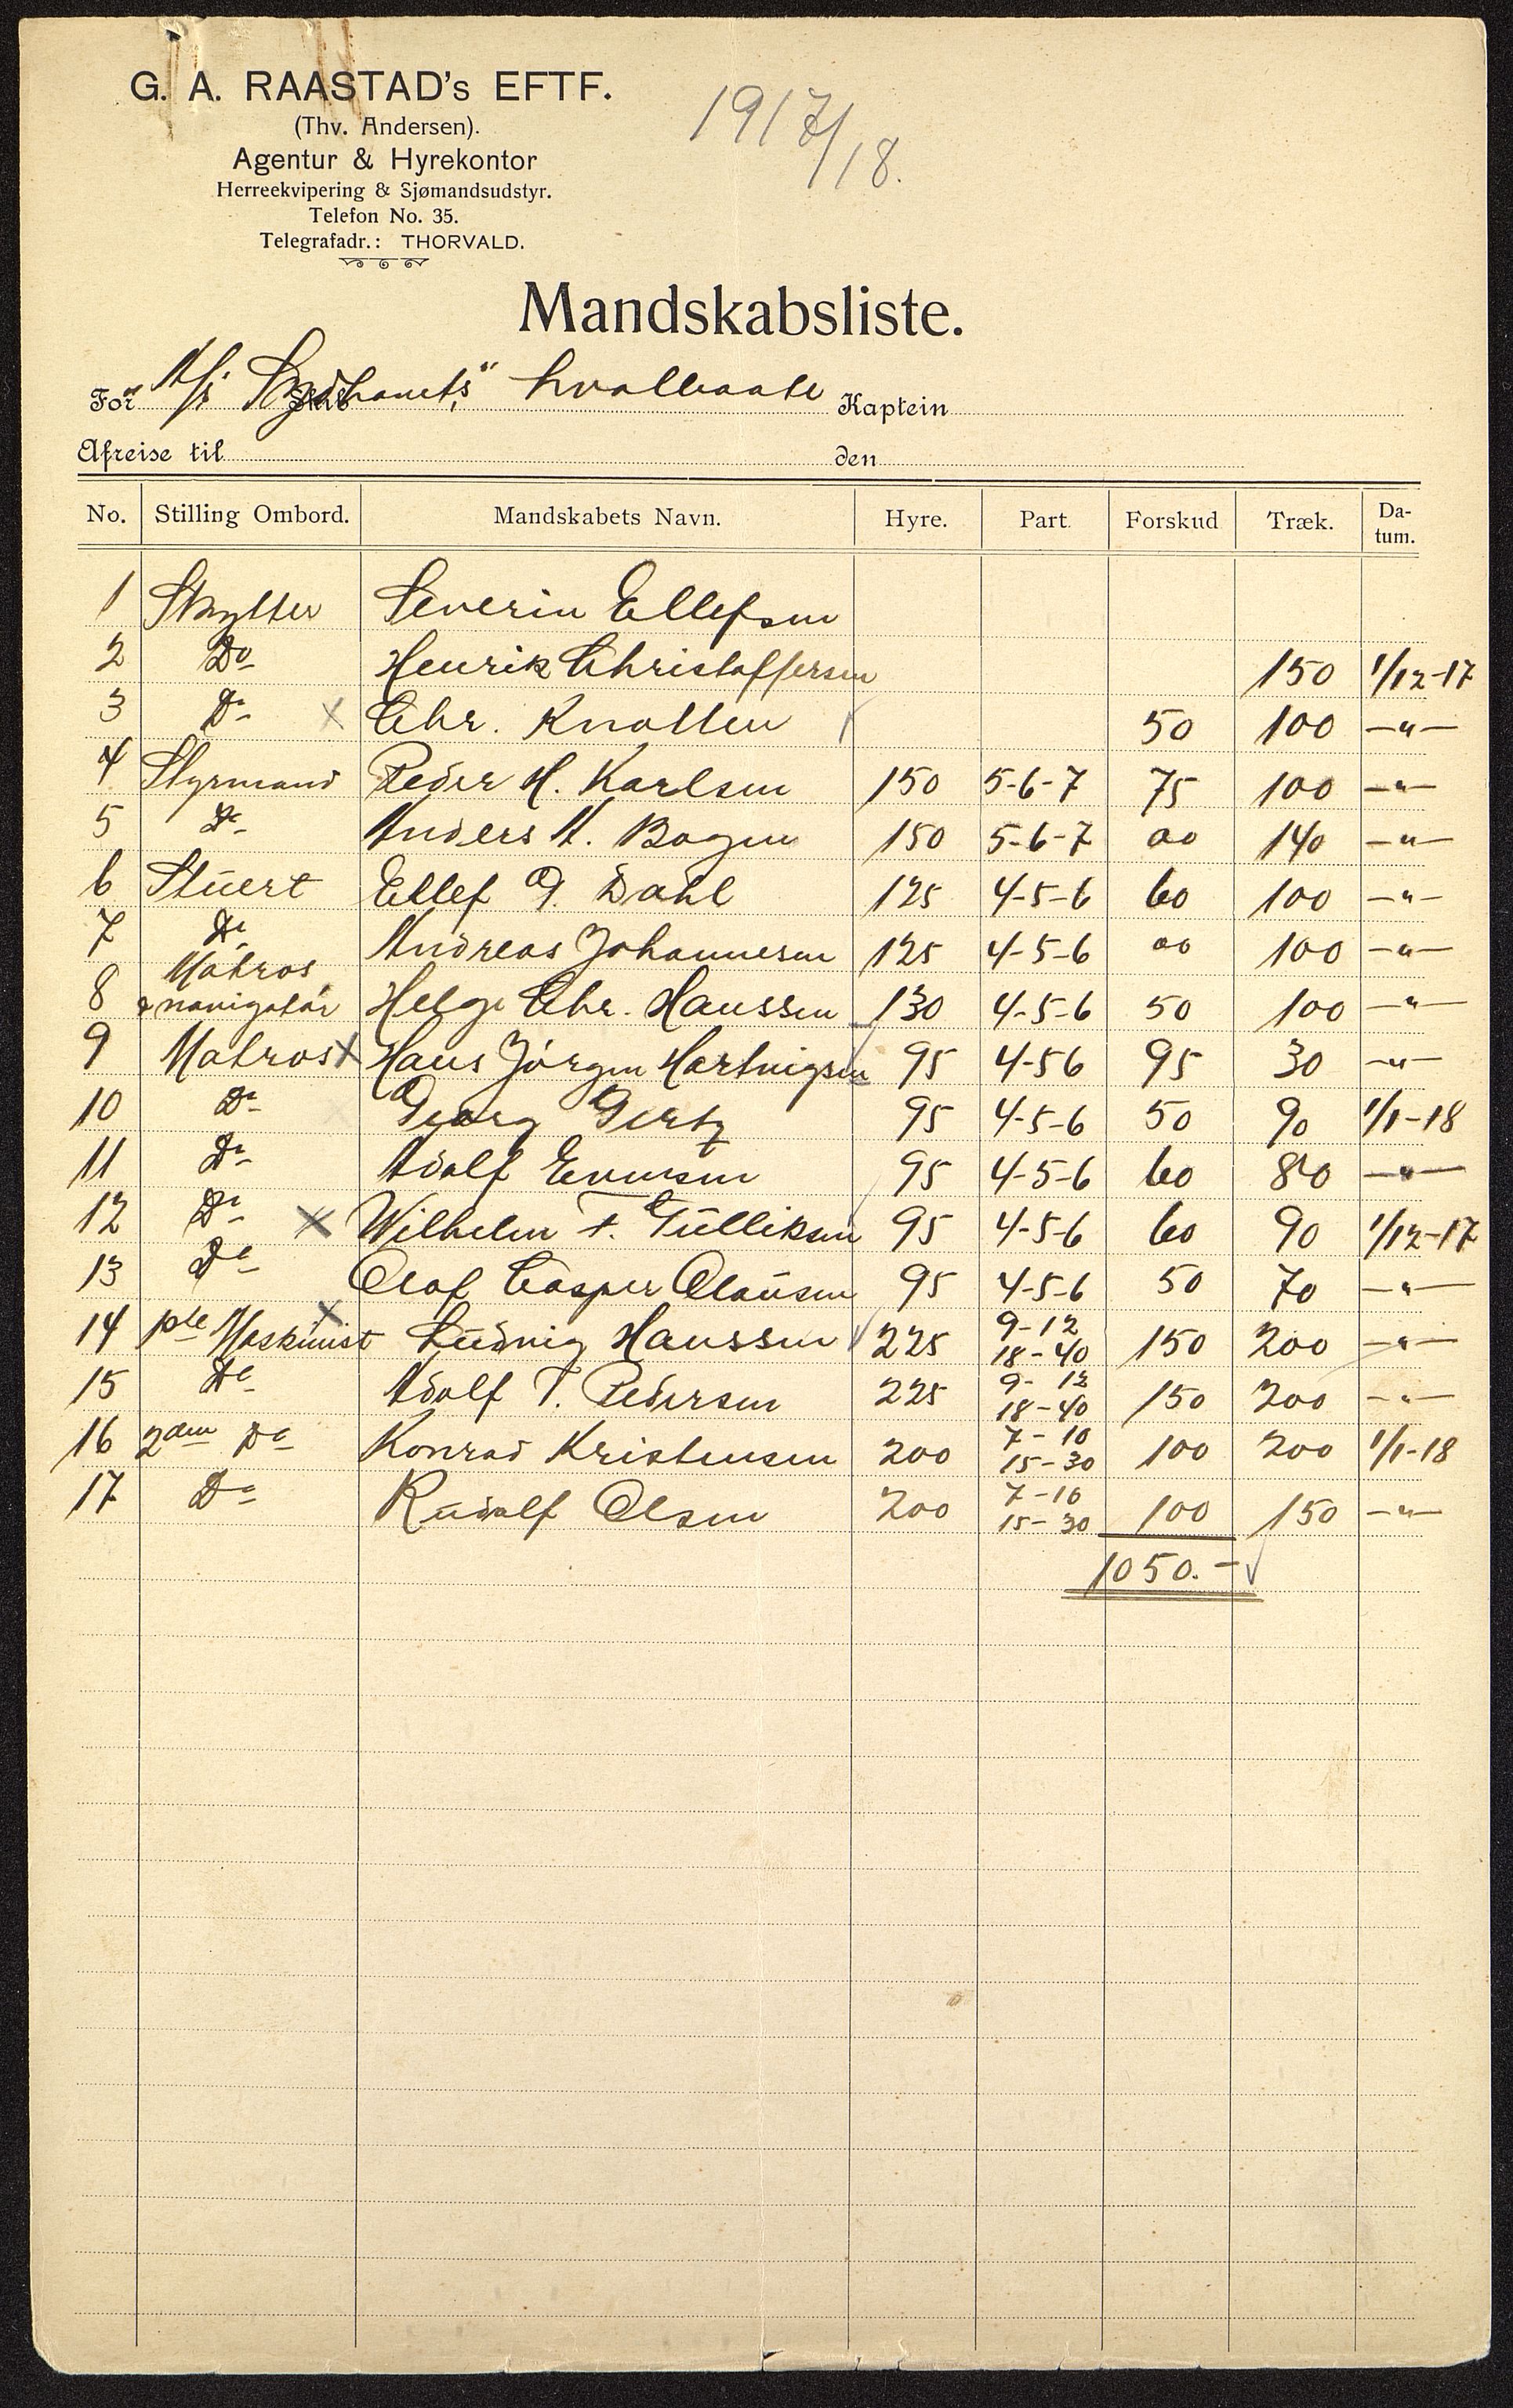 G. A. RAASTAD's EFTF.
(Thv. Andersen).
Agentur & Hyrekontor
Herreekvipering & Sjømandsudstyr.
Telefon No. 35.
Telegrafadr.: THORVALD.
1917/18.
Mandskabsliste.
For A/S "Sydhavets" hvalbaate Kaptein
Afreise til den
No. Stilling Ombord. Mandskabets Navn. Hyre. Part. Forskud Træk. Da-tum.
1 Skytter Severin Ellefsen
2 Do Henrik Christoffersen 150 1/12-17
3 Do x Chr. Knatten 50 100 -"-
4 Styrmand Peder H. Karlsen 150 5-6-7 75 100 -"-
5 Do Anders A. Bogen 150 5-6-7 00 140 -"-
6 Stuert Ellef G. Dahl 125 4-5-6 60 100 -"-
7 Do Andreas Johannesen 125 4-5-6 00 100 -"-
8 Matros & navigatør Helge Chr. Hanssen 130 4-5-6 50 100 -"-
9 Matros x Hans Jørgen Hartvigsen 95 4-56 95 30 -"-
10 Do Georg Gertz 95 4-5-6 50 90 1/1-18
11 Do Adolf Evensen 95 4-5-6 60 80 -"-
12 Do x Wilhelm F. Gulliksen 95 4-5-6 60 90 1/12-17
13 Do Olaf Casper Clausen 95 4-5-6 50 70 -"-
14 1ste Maskinist x Ludvig Hanssen √ 225 9-12 18-40 150 200 -"-
15 Do Adolf T. Pedersen 225 9-12 18-40 150 200 -"-
16 2den Do Konrad Kristensen 200 7-10 15-30 100 200 1/1-18
17 Do Rudolf Olsen 200 7-10 15-30 100 150 -"-
1050.- √